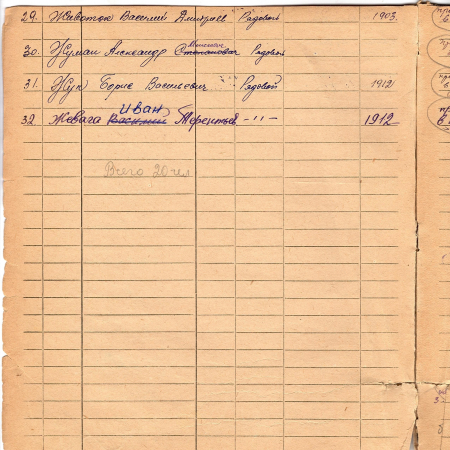 29. Животок Василий Дмитриев Рядовой 1903.
30. Жуман Александр Степанович Рядовой
31. Жук Борис Васильевич Рядовой 1912
Иван
32. Жевага Василий Терентьев -"- 1912
Всего 20 чел